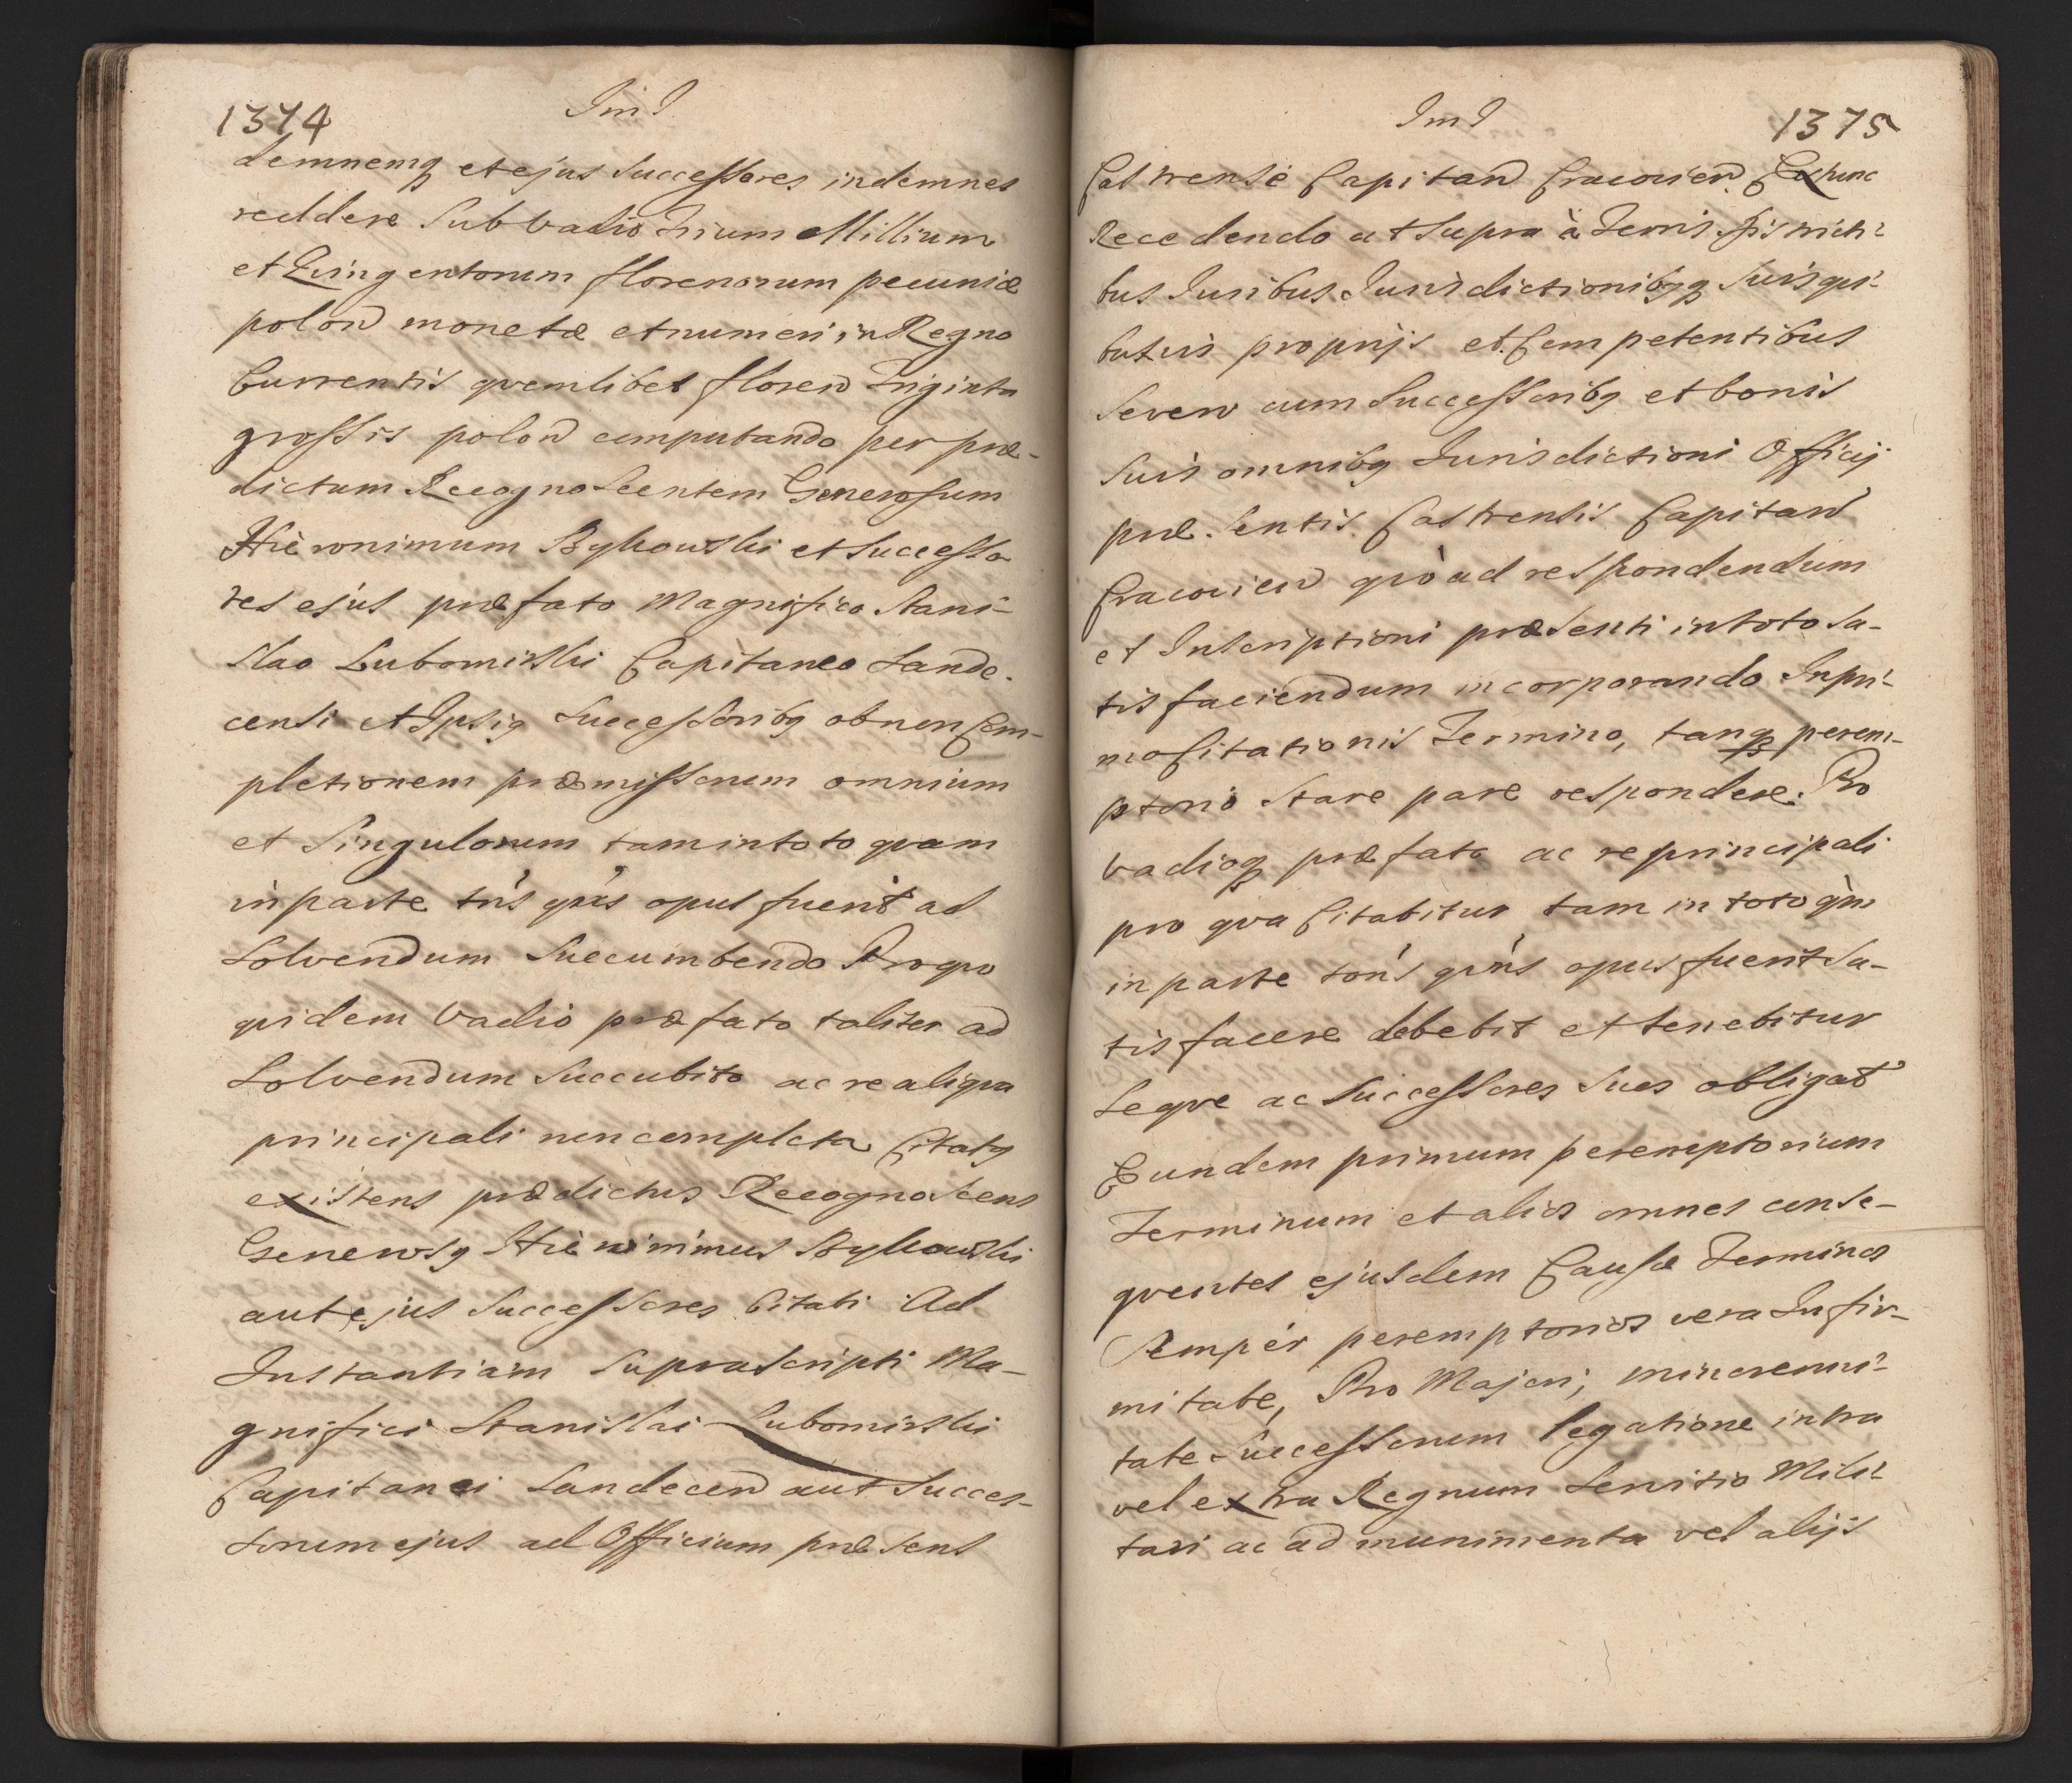 1374
demnemq et ejus Successores indemnes
reddere Sub Vadio Trium Millium
et Quingentorum florenorum pecuniæ
polon monetæ et numeri in Regno
Currentis qvemlibet floren Triginta
grossis polon computando per præ-
dictum Recognoscentem Generosum
Hieronimum Bykowski et Successo
res ejus præfato Magnifico Stani-
slao Lubomirski Capitaneo Sande-
censi et Ipsig Successoribg ob non Com-
pletionem præmissorum omnium
et Singulorum tam in toto qvam
in parte tns qns opus fuerit ad
Solvendum Succumbendo Pro qvo
qvidem Vadio præfato taliter ad
Solvendum Succubito ac re aliqva
principali non completa Citatg
existens prædictus Recognoscens
Generosg Hieronimus Bykowski
aut ejus Successores Citati Ad
Instantiam Suprascripti Ma-
gnifici Stanislai Lubomirski
Capitanei Sandecen aut Succes-
sorum ejus ad Officium præsens
1375
Castrense Capitan Cracovien Extunc
Recedendo ut Supra à Terris Districti-
bus Juribus Jurisdictionibgq Suis qvi-
busvis proprijs et Competentibus
Seven cum Successoribg et bonis
Suis omnibg Jurisdictioni Officij
præsentis Castrensis Capitan
Cracovien qvò ad respondendum
et Inscriptioni præsenti in toto Sa-
tisfaciendum incorporando In pri-
mo Citationis Termino, tanq perem-
ptorio Stare pare respondere. Pro
Vadioq præfato ac re principali
pro qva Citabitur tam in toto qm
in parte tons qns opus fuerit Sa-
tisfacere debebit et tenebitur
Seqve ac Successores Suos obligat
Eundem primum peremptorium
Terminum et alios omnes conse-
qventes ejusdem Causæ Terminos
Semper peremptorios vera Infir-
mitate, Pro Majori, minorenni-
tate Successorum legatione intra
vel extra Regnum Servitio Mili-
tari ac ad munimenta vel alijs